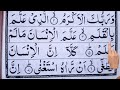 وَرَبُّكَ الْاَكْرَمُ ۝ الَّذِیْ عَلَّمَ
بِالْقَلَمِ ۝ عَلَّمَ الْاِنْسَانَ مَا لَمْ
یَعْلَمْ ۝ كَلَّاۤ اِنَّ الْاِنْسَانَ
لَیَطْغٰۤی ۝ اَنْ رَّاٰهُ اسْتَغْنٰی ۝